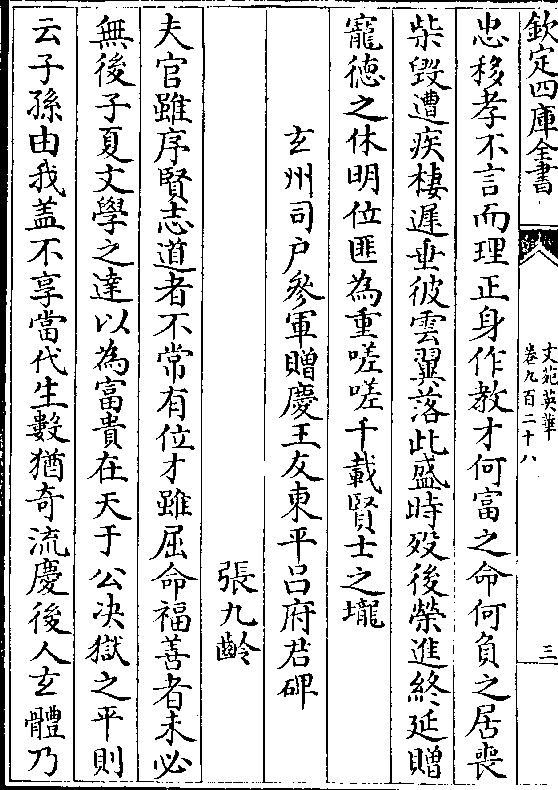 欽定四庫全書
文苑英華
卷九百二十八
三
忠移孝不言而理正身作教才何富之命何負之居喪
柴毀遭疾棲遲垂彼雲翼落此盛時歿後榮進終延贈
寵德之休明位匪為重嗟嗟千載賢士之壠
玄州司户參軍贈慶王友東平呂府君碑
張九齡
夫官雖序賢志道者不常有位才雖屈命福善者未必
無後子夏文學之達以為富貴在天于公决獄之平則
云子孫由我盖不享當代生數猶奇流慶後人玄體乃